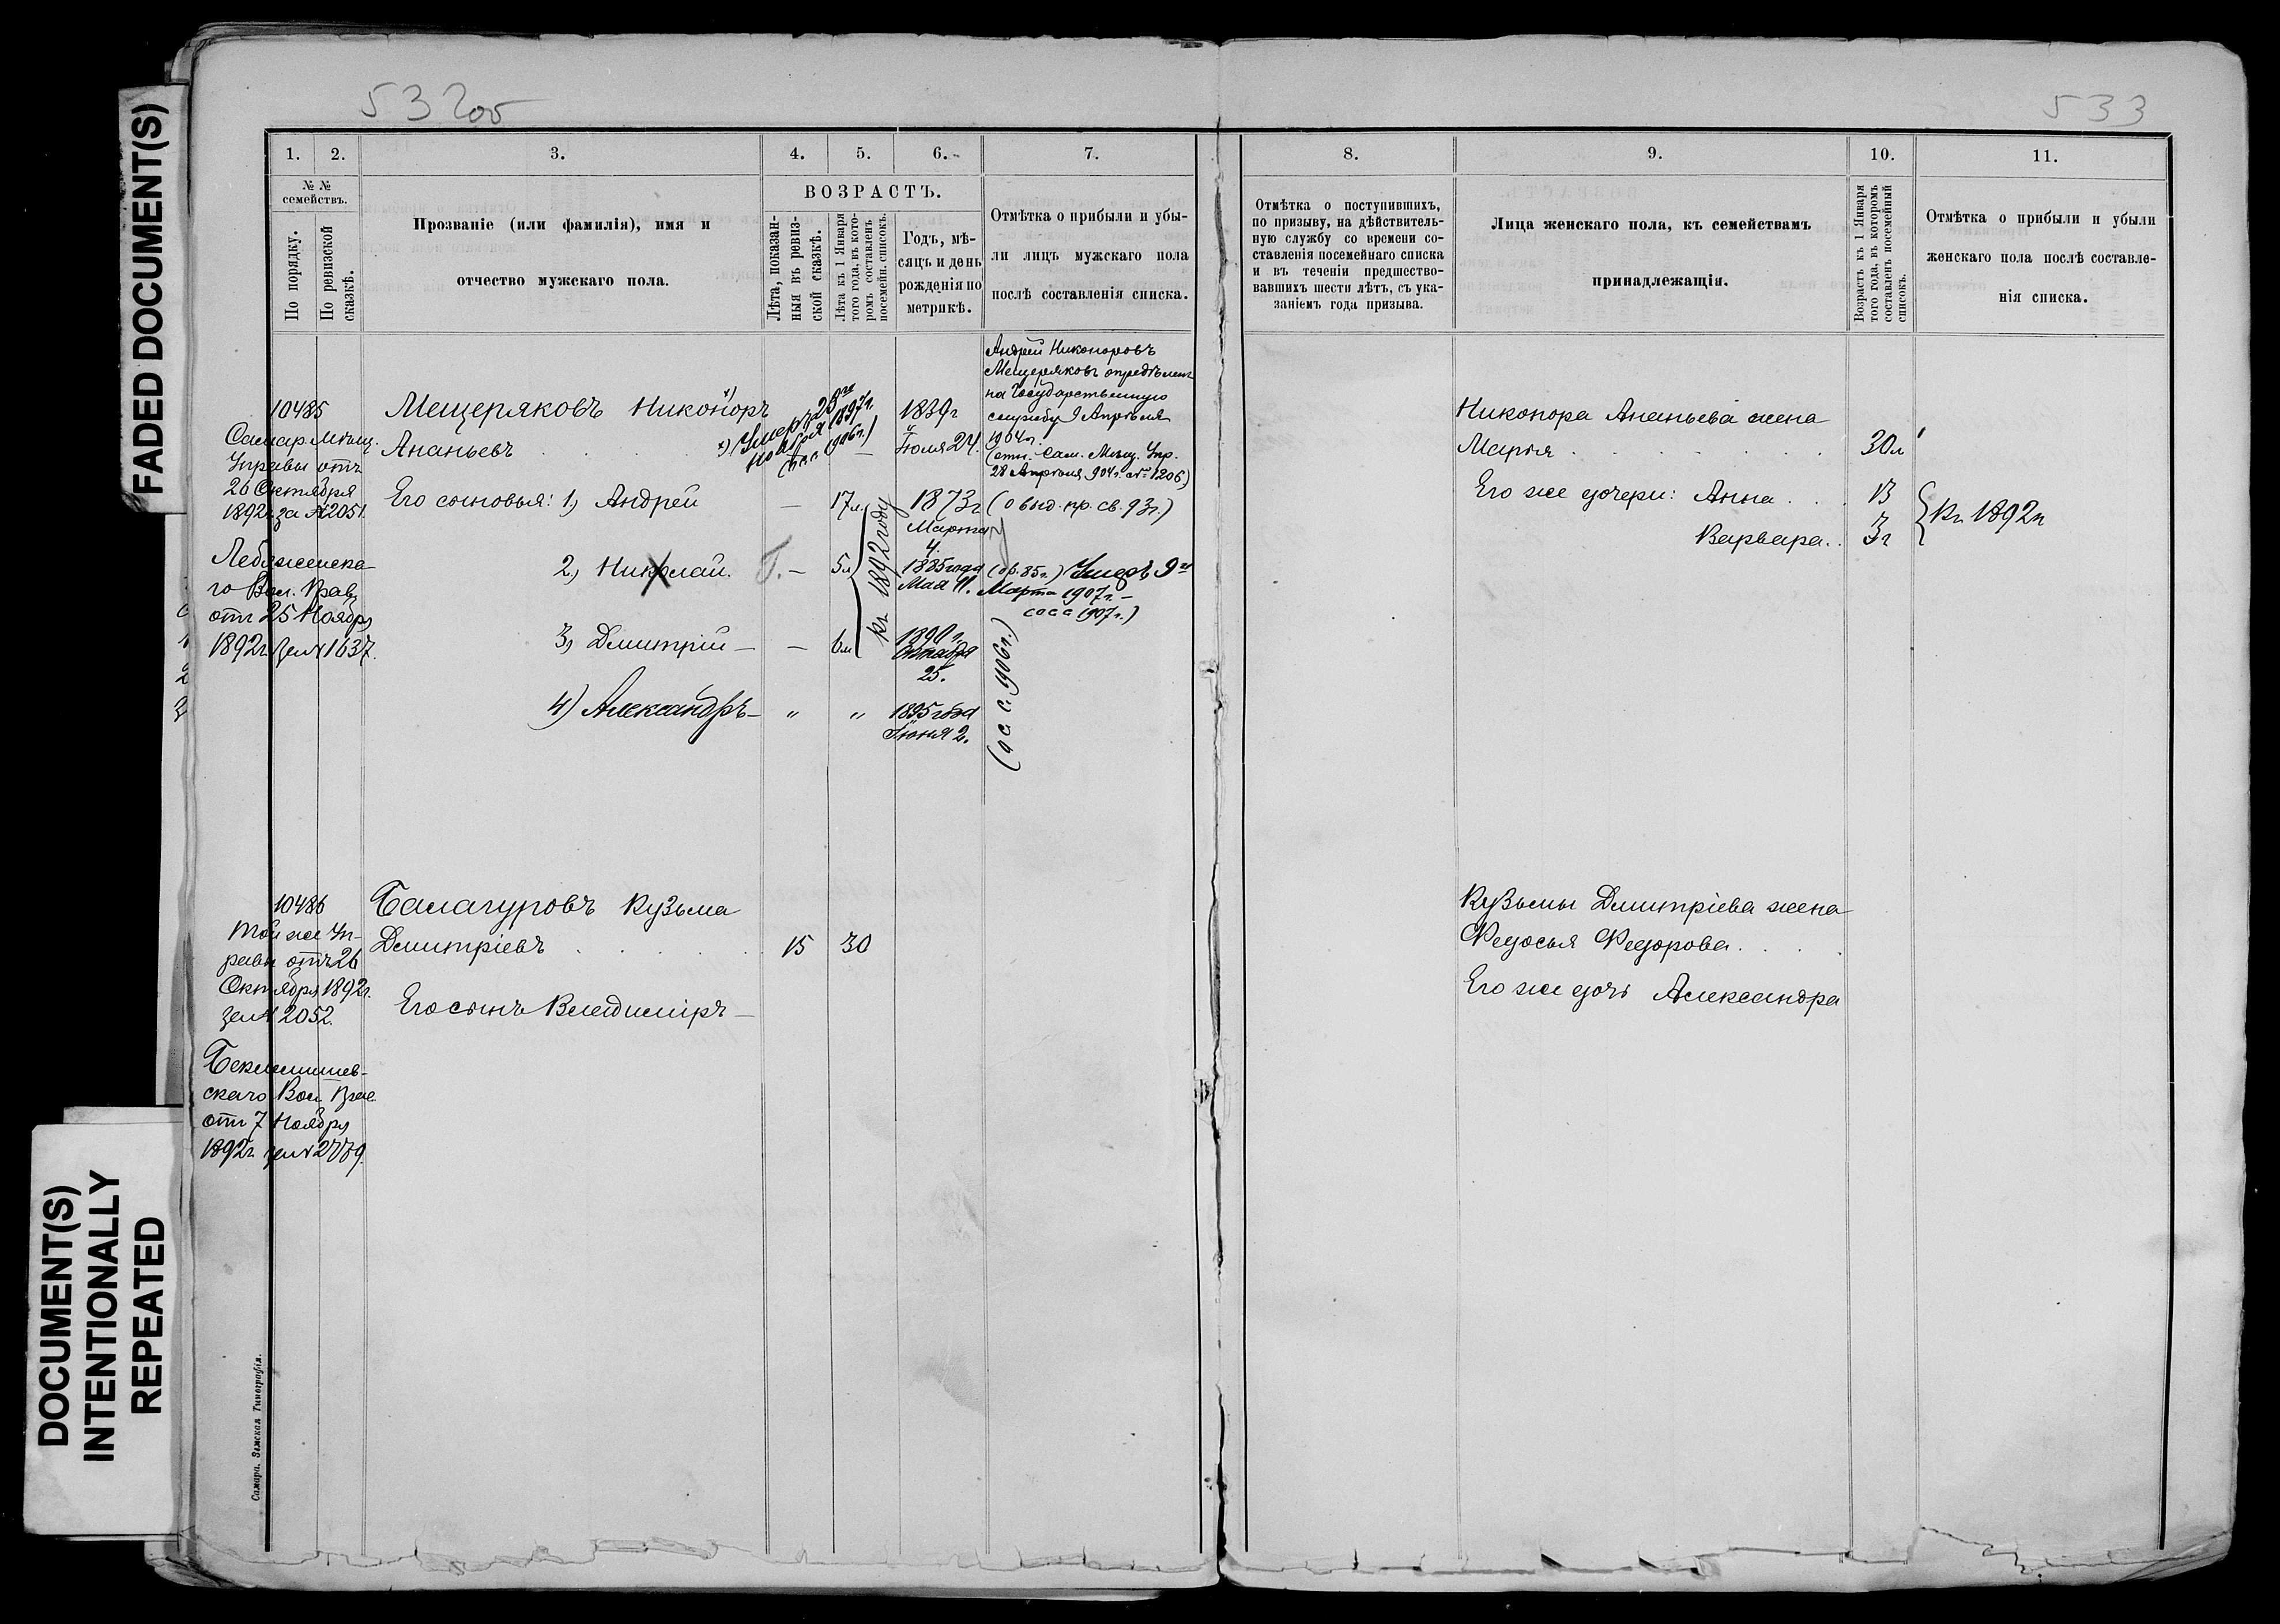 FADED DOCUMENT(S)
DOCUMENT(S)
INTENTIONALLY
REPEATED
532об
533
1.
2.
3.
4.
5.
6.
7.
№ №
семействъ.
По порядку.
По ревизской
сказкѣ.
Прозваніе (или фамилія), имя и
отчество мужскаго пола.
ВОЗРАСТЪ.
Лѣта, показан-
ныя въ ревиз-
ской сказкѣ.
Лѣта къ 1 Января
того года, въ кото-
ромъ составленъ
посемейн. списокъ.
Годъ, мѣ-
сяцъ и день
рожденія по
метрикѣ.
Отмѣтка о прибыли и убы-
ли лицъ мужскаго пола
послѣ составленія списка.
8.
9.
10.
11.
Отмѣтка о поступившихъ,
по призыву, на дѣйствитель-
ную службу со времени со-
ставленія посемейнаго списка
и въ теченіи предшество-
вавшихъ шести лѣтъ, съ ука-
заніемъ года призыва.
Лица женскаго пола, къ семействамъ
принадлежащія.
Возрастъ къ 1 Января
того года, въ которомъ
составленъ посемейный
списокъ.
Отмѣтка о прибыли и убыли
женскаго пола послѣ составле-
нія списка.
10485
Самар. Мѣщ.
Управы отъ
26 Октября
1892г. за № 2051.
Лебяженска-
го Вол. Прав.
отъ 25 Ноября
1892г. за № 1637.
Мещеряковъ Никоноръ х)
Ананьевъ
х) Умеръ 28го
Ноября 1897г.
1906г.)
1839г
Іюля 24.
Андрей Никоноровъ
Мещеряковъ опредѣленъ
на Государственную
службу 9 Апрѣля
1904г.
(отн. Сам. Мѣщ. Упр.
28 Апрѣля 904г. № 1206)
Его сыновья: 1) Андрей
—
17л
1873г
Марта
4.
(о выд. пр. св. 93г.)
2.) Николай.
—
5л
къ 1892 году
1885 года
Мая 11.
(об. 85г.) Умеръ 9го
Марта 1907г. —
сос с 1907г.)
3) Дмитрій —
—
6м
1890г.
Октября
25.
4) Александръ —
"
"
1895 года
Іюня 2.
(о с с. 1906г.)
Никонора Ананьева жена
Марья
30л
Его же дочери: Анна
13
Варвара
3г
Къ 1892г
10486
Той же Уп-
равы отъ 26
Октября 1892г.
за № 2052.
Беклемишев-
скаго Вол. Прав.
отъ 7 Ноября
1892г. за № 2779.
Балагуровъ Кузьма
Дмитріевъ
15
30
Его сынъ Владиміръ —
Кузьмы Дмитріева жена
Федосья Федорова.
Его же дочь Александра
Самара. Земская Типографія.